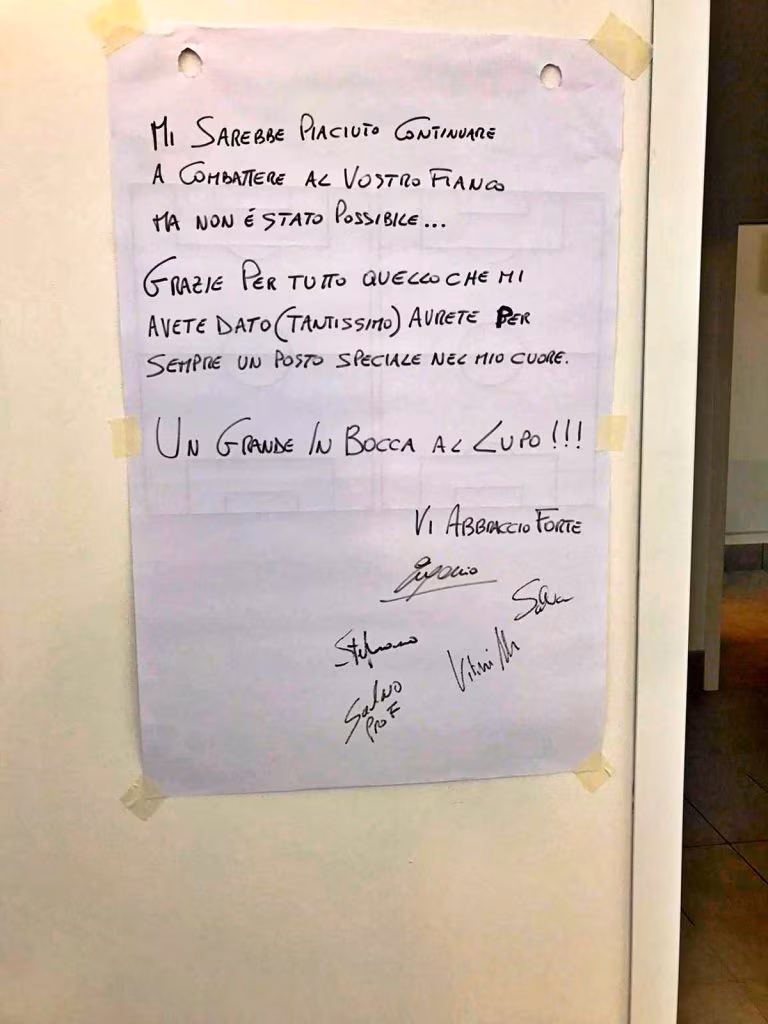 Mi SAREBBE PIACIUTO CONTINUARE
A COMBATTERE AL VOSTRO FIANCO
MA NON É STATO POSSIBILE...
GRAZIE PER TUTTO QUELLO CHE MI
AVETE DATO (TANTISSIMO) AVRETE PER
SEMPRE UN POSTO SPECIALE NEL MIO CUORE.
UN GRANDE IN BOCCA AL LUPO!!!
VI ABBRACCIO FORTE
Eugenio
Salva
Stefano
Salvo
Prof